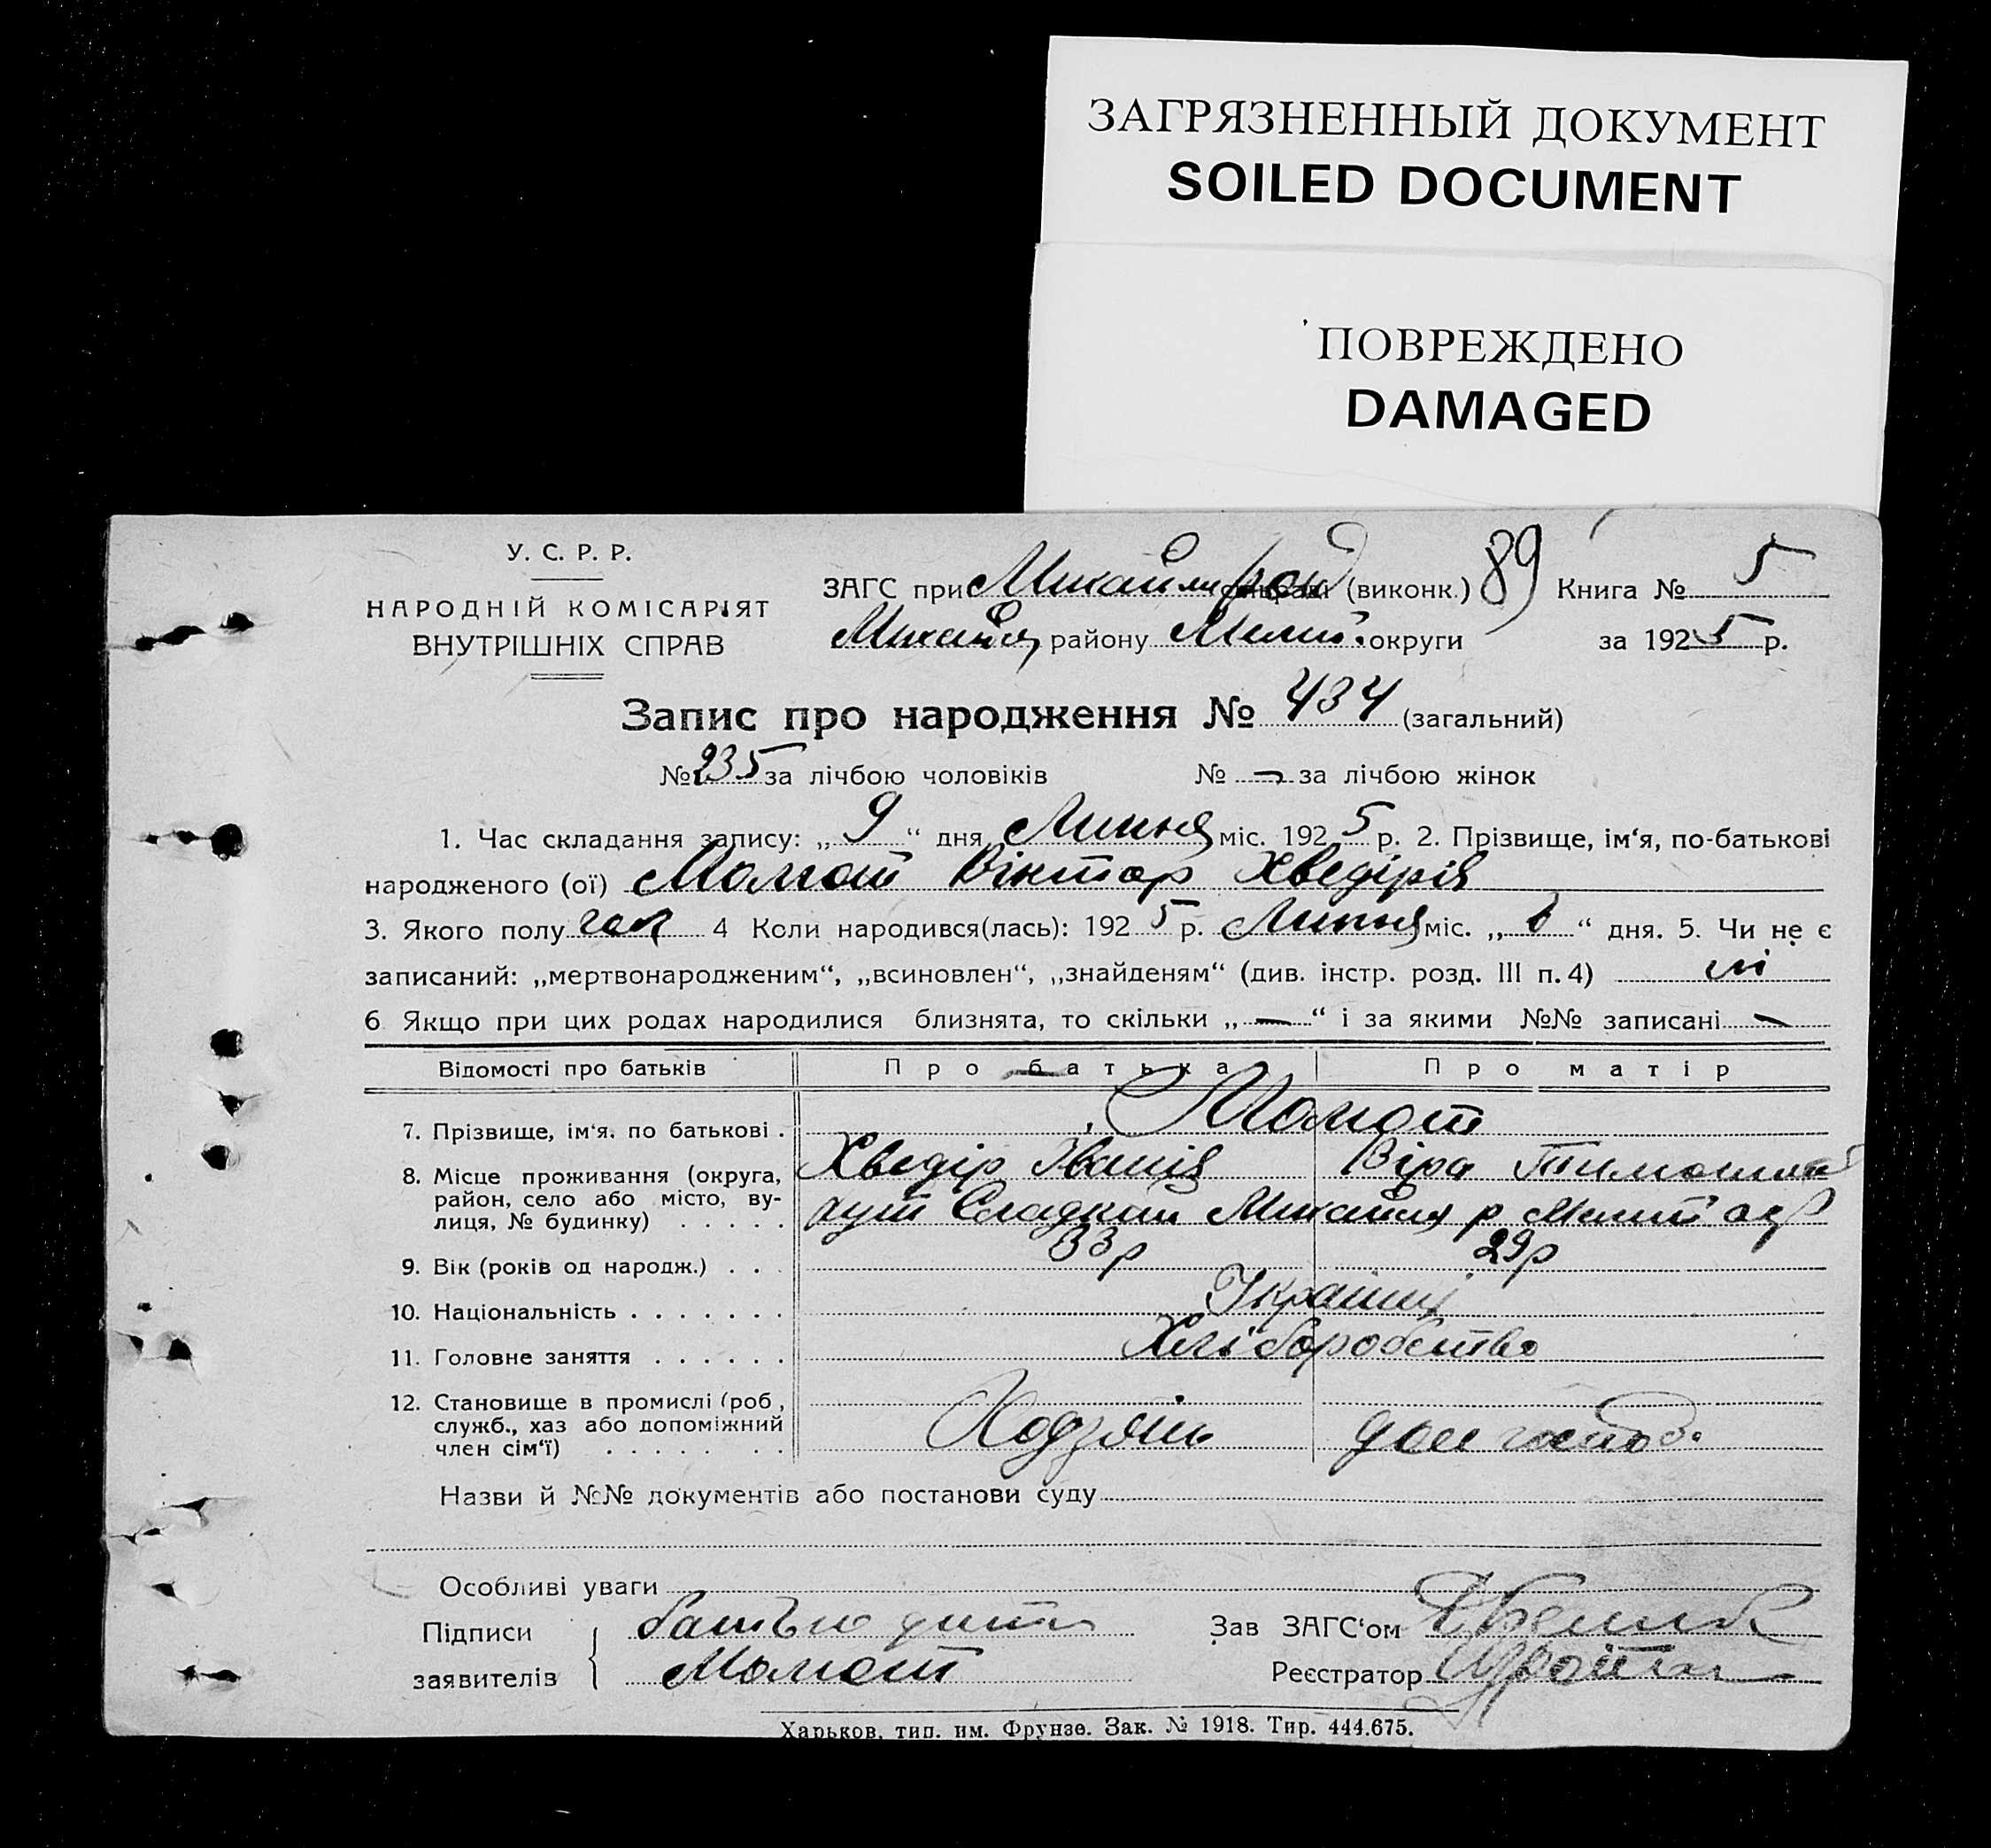 ЗАГРЯЗНЕННЫЙ ДОКУМЕНТ
SOILED DOCUMENT
ПОВРЕЖДЕНО
DAMAGED
У. С. Р. Р.
НАРОДНІЙ КОМІСАРІЯТ
ВНУТРІШНІХ СПРАВ
ЗАГС при (виконк.) 89 Книга № 5
району Мелит. округи за 1925 р.
Запис про народження № 434 (загальний)
№ 235 за лічбою чоловіків № — за лічбою жінок
1. Час складання запису: „ 9 “ дня Липня міс. 1925 р. 2. Прізвище, ім‘я, по-батькові
народженого (ої) Момот Віктор Хведірів
3. Якого полу чол 4 Коли народився(лась): 1925 р. Липня міс. „ “ дня. 5. Чи не є
записаний: „мертвонародженим“, „всиновлен“, „знайденям“ (див. інстр. розд. III п. 4) ні
6 Якщо при цих родах народилися близнята, то скільки „ — “ і за якими №№ записані —
Відомості про батьків Про батька Про матір
7. Прізвище, ім‘я, по батькові . Момот
Хведір Іванів Віра
8. Місце проживання (округа,
район, село або місто, ву-
лиця, № будинку) . . . . . хут Сладкий р Мелит
9. Вік (років од народж.) . . . 33р 29р
10. Національність . . . . . . . Українці
11. Головне заняття . . . . . . Хліборобство
12. Становище в промислі (роб ,
служб., хаз або допоміжний
член сім‘ї) . . . . . . . Ходзяїн дом господ.
Назви й №№ документів або постанови суду
Особливі уваги
Підписи батько
заявителів Момот
Зав ЗАГС‘ом
Реєстратор
Харьков, тип. им. Фрунзе. Зак. № 1918. Тир. 444.675.